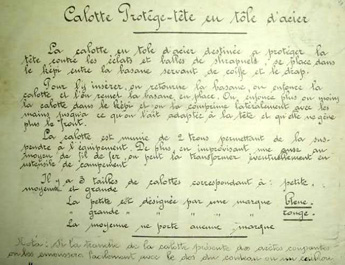 Calotte Protège-tête en tôle d'acier
La calotte en tôle d'acier destinée à protéger la
tête contre les éclats et balles de shrapnels, se place dans
le képi entre la basane servant de coiffe et le drap.
Pour l'y insérer, on retourne la basane, on enfonce la
calotte et l'on remet la basane en place. On enfonce plus ou moins
la calotte dans le képi et on la comprime latéralement avec les
mains jusqu'à ce qu'on l'ait adaptée à la tête et qu'elle ne gêne
plus le front.
La calotte est munie de 2 trous permettant de la sus-
pendre à l'équipement. De plus, en improvisant une anse au
moyen de fil de fer, on peut la transformer éventuellement en
ustensile de campement
Il y a 3 tailles de calottes correspondant à petite,
moyenne et grande
La petite est désignée par une marque bleue.
" grande " " " rouge.
La moyenne ne porte aucune marque
Nota: Si la tranche de la calotte présente des arêtes coupantes
on les émoussera facilement avec le dos du couteau ou un caillou